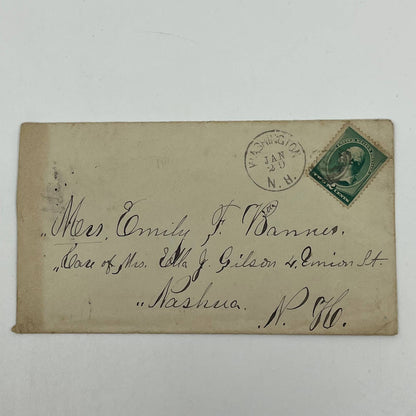 WASHINGTON
JAN
29
N.H.
Mrs. Emily F.
Care of Mrs. Ella J. Gilson 4 Union St.
Nashua.
N. H.